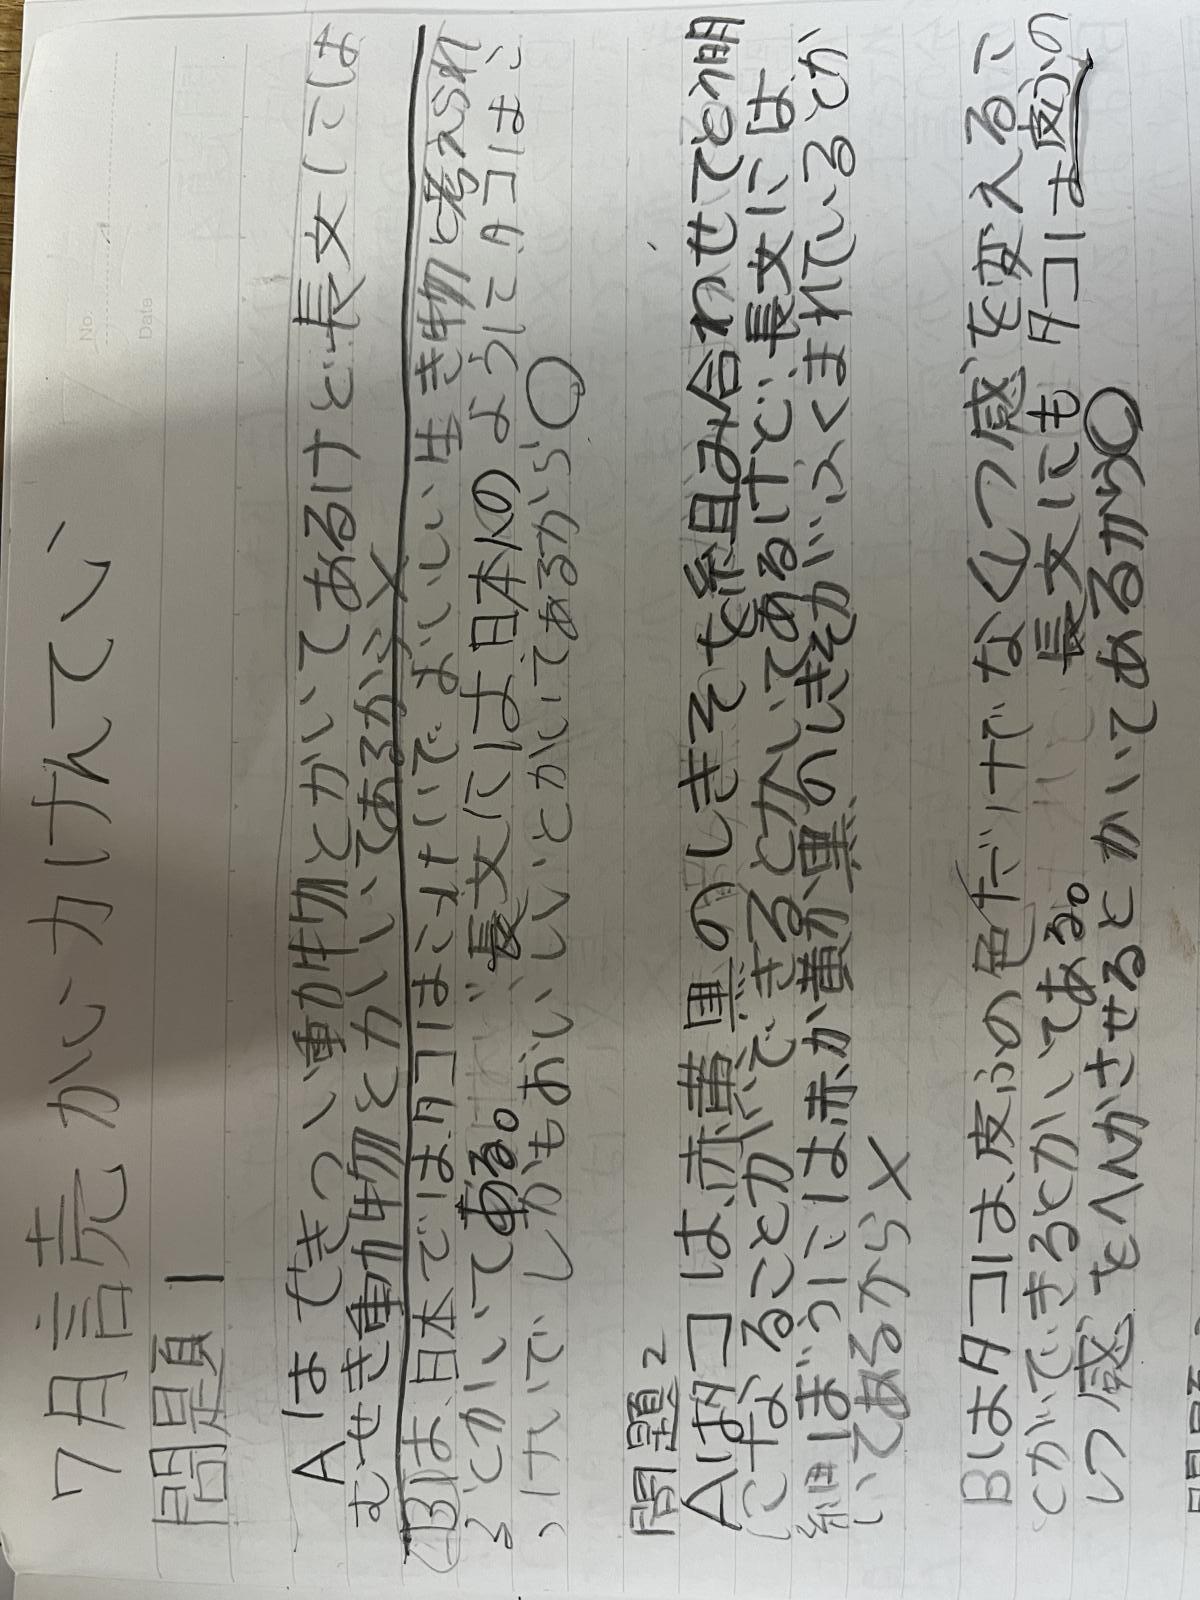 No.
Date
7月読かいカけんてい
問題1
Aはせきつい動物とかいてあるけど長文にては
むせき動物とかいてあるから×
Bは、日本ではタコはこけいでよいしい生き物と考えられ
るとかいてある。長文には日本人のようにタコはこ
っけいでしかもおいしいとかいてあるから〇
問題2
Aはタコは、赤黄黒のしきそを組み合わせてと明
になることができるとかいてあるけど、長文には
細ぼうには赤か黄か黒のしきそがふくまれているとか
いてあるから×
Bはタコは、皮ふの色だけでなくしつ感を変えるこ
とができるとかいてある。長文にもタコは皮ふの
しつ感をへんかさせるとかいてあるから〇